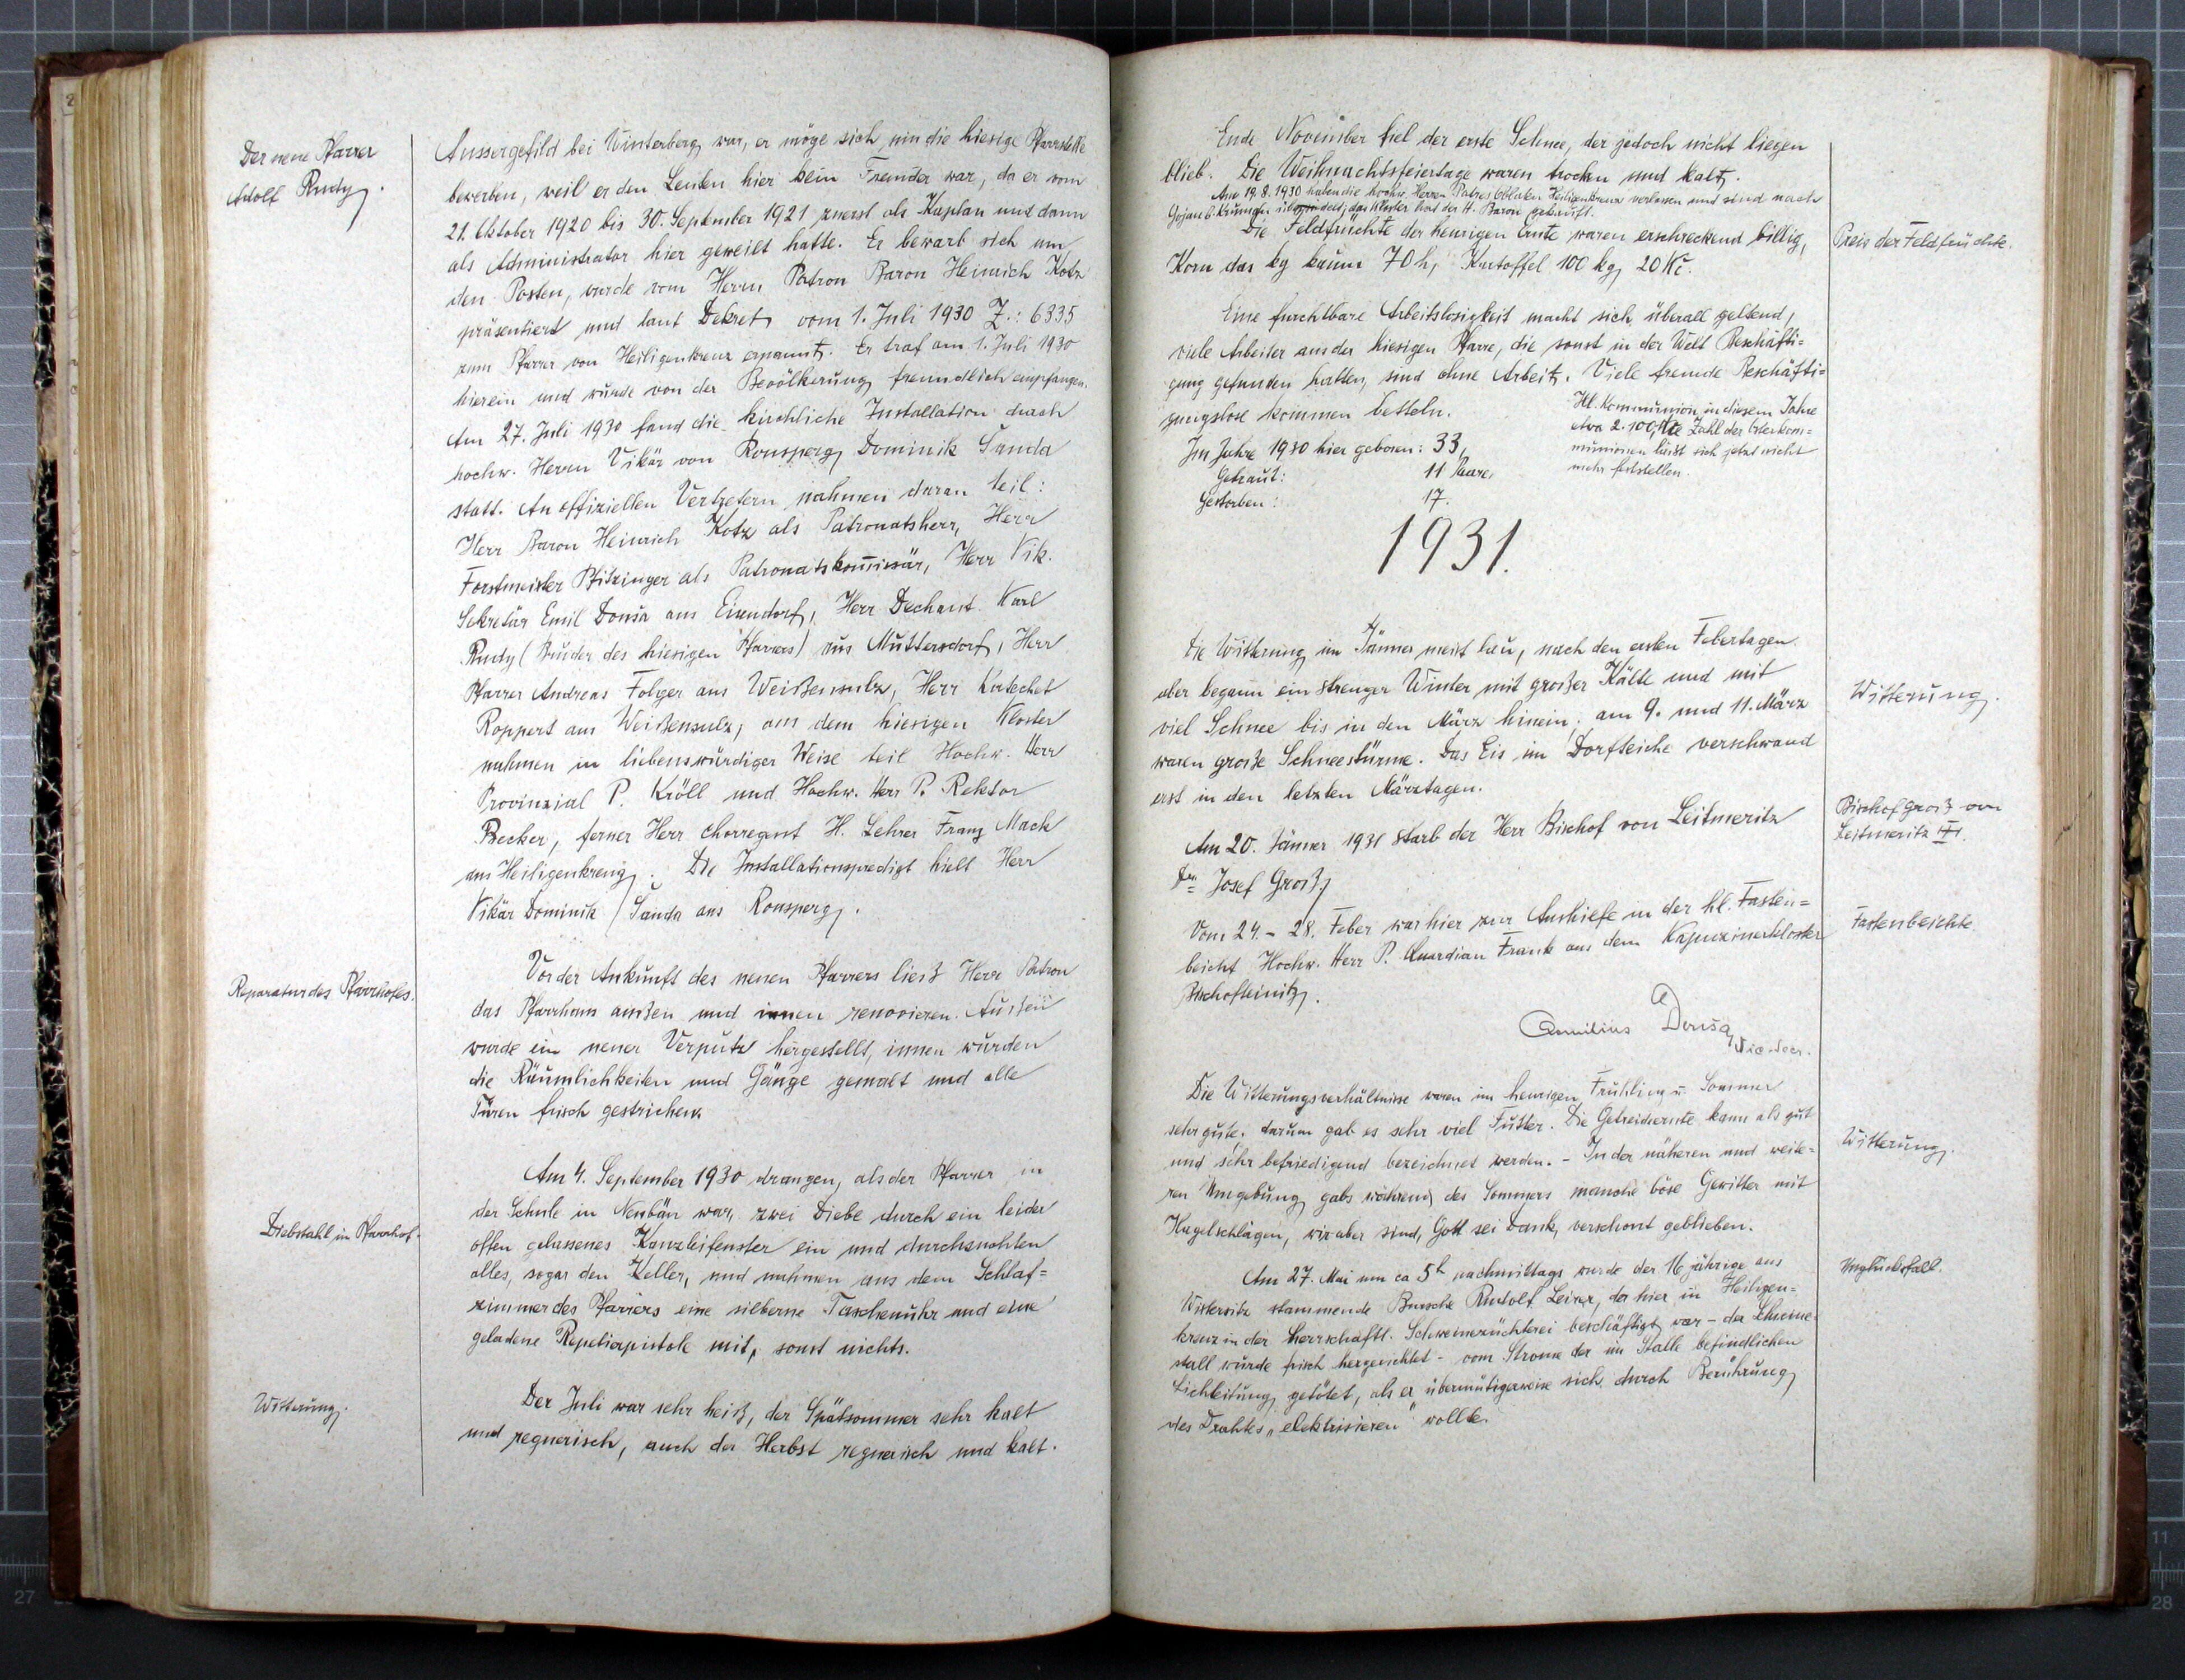 Der neue Pfarrer
Adolf Rudy.
Aussergefild bei Winterberg war, er möge sich um die hiesige Pfarrstelle
bewerben, weil er den Leuten hier kein Fremder war, da er vom
21. Oktober 1920 bis 30. September 1921 zuerst als Kaplan und dann
als Administrator hier geweilt hatte. Er bewarb sich um
den Posten, wurde vom Herrn Patron Baron Heinrich Kotz
präsentiert und laut Dekret vom 1. Juli 1930 Z.: 6335
zum Pfarrer von Heiligenkreuz ernannt. Er traf am 1. Juli 1930
hierein und wurde von der Bevölkerung freundlich empfangen.
Am 27. Juli 1930 fand die kirchliche Installation durch
hochw. Herrn Vikär von Ronsperg Dominik Šanda
statt. An offiziellen Vertretern nahmen daran teil:
Herr Baron Heinrich Kotz als Patronatsherr, Herr
Forstmeister Pfitzinger als Patronatskom̄issär, Herr Vik.
Sekretär Emil Douša aus Eisendorf, Herr Dechant Karl
Rudy (Bruder des hiesigen Pfarrers) aus Muttersdorf, Herr
Pfarrer Andreas Folger aus Weißensulz, Herr Katechet
Roppert aus Weißensulz, aus dem hiesigen Kloster
nahmen in liebenswürdiger Weise teil Hochw. Herr
Provinzial P. Kröll und Hochw. Herr P. Rektor
Becker, ferner Herr Chorregent H. Lehrer Franz Mack
aus Heiligenkreuz. Die Installationspredigt hielt Herr
Vikär Dominik Šanda aus Ronsperg.
Reparatur des Pfarrhofes.
Vor der Ankunft des neuen Pfarrers ließ Herr Patron
das Pfarrhaus außen und innen renovieren. Außen
wurde ein neuer Verputz hergestellt, innen wurden
die Räumlichkeiten und Gänge gemalt und alle
Türen frisch gestrichen.
Am 4. September 1930 drangen, als der Pfarrer in
der Schule in Neubäu war, zwei Diebe durch ein leider
Diebstahl im Pfarrhof.
offen gelassenes Kanzleifenster ein und durchsuchten
alles, sogar den Keller, und nahmen aus dem Schlaf=
zimmer des Pfarrers eine silberne Taschenuhr und eine
geladene Repetierpistole mit, sonst nichts.
Witterung.
Der Juli war sehr heiß, der Spätsommer sehr kalt
und regnerisch, auch der Herbst regnerisch und kalt.
Ende November fiel der erste Schnee, der jedoch nicht liegen
blieb. Die Weihnachtsfeiertage waren trocken und kalt.
Am 19.8.1930 haben die hochw. Herren Patres Oblaten Heiligenkreuz verlassen und sind nach
Gojau b. Krummau übersiedelt; das Kloster hat der H. Baron gekauft.
Die Feldfrüchte der heurigen Ernte waren erschreckend billig,
Preis der Feldfrüchte.
Korn das kg kaum 70 h, Kartoffel 100 kg 20 Kč.
Eine furchtbare Arbeitslosigkeit macht sich überall geltend,
viele Arbeiter aus der hiesigen Pfarre, die sonst in der Welt Beschäfti=
gung gefunden hatten, sind ohne Arbeit. Viele fremde Beschäfti=
gungslose kommen betteln.
Im Jahre 1930 hier geboren: 33,
Getraut: 11 Paare,
Gestorben: 17.
Hl. Kommunion in diesem Jahre
etwa 2.100, die Zahl der Osterkom=
munionen lässt sich jetzt nicht
mehr feststellen.
1931.
Die Witterung im Jänner meist lau, nach den ersten Febertagen
aber begann ein strenger Winter mit großer Kälte und mit
Witterung.
viel Schnee bis in den März hinein; am 9. und 11. März
waren große Schneestürme. Das Eis im Dorfteiche verschwand
erst in den letzten Märztagen.
Am 20. Jänner 1931 starb der Herr Bischof von Leitmeritz
Dr. Josef Groß.
Bischof Groß von
Leitmeritz
Vom 24. - 28. Feber war hier zur Aushilfe in der hl. Fasten=
Fastenbeichte
beicht Hochw. Herr P. Quardian Frank aus dem Kapuzinerkloster
Bischofteinitz.
Aemilius Douša
Vic. Secr.
Die Witterungsverhältnisse waren im heurigen Frühling u. Sommer
sehr gute, darum gab es sehr viel Futter. Die Getreideernte kann als gut
Witterung.
und sehr befriedigend bezeichnet werden. - In der näheren und weite=
ren Umgebung gabs während des Sommers manche böse Gewitter mit
Hagelschlägen, wir aber sind, Gott sei Dank, verschont geblieben.
Unglücksfall.
Am 27. Mai um ca 5h nachmittags wurde der 16 jährige aus
Wittersitz stammende Bursche Rudolf Leirer, der hier in Heiligen=
kreuz in der herrschaftl. Schweinezüchterei beschäftigt war - der Schweine
stall wurde frisch hergerichtet - vom Strome der im Stalle befindlichen
Lichtleitung getötet, als er übermütigerweise sich durch Berührung
des Drahtes "elektrisieren" wollte.